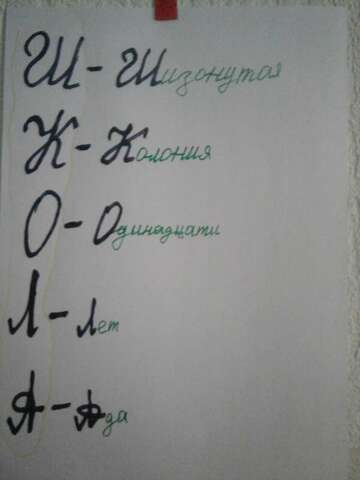 Ш - Шизонутая
К - Колония
О - Одинадцати
Л - Лет
А - Ада